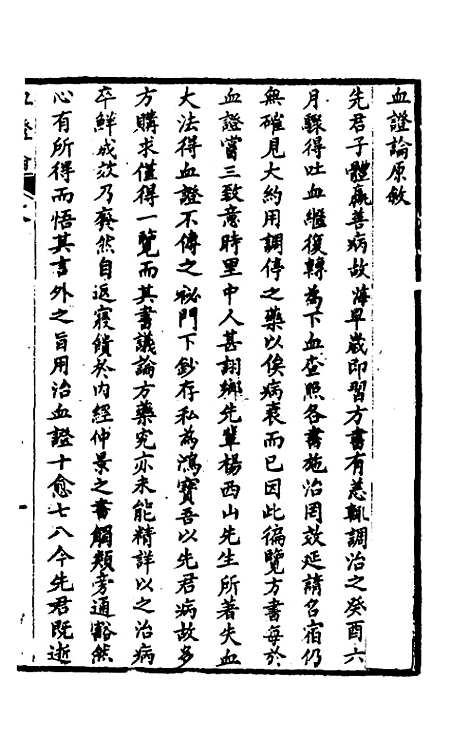 血證論原敘
先君子體羸善病故海早歲即習方書有恙輒調治之癸酉六
月驟得吐血繼復轉為下血查照各書施治罔效延請名宿仍
無確見大約用調停之藥以俟病衰而已因此徧覽方書每於
血證嘗三致意時里中人甚詡鄉先輩楊西山先生所著失血
大法得血證不傳之祕門下鈔存私為鴻寶吾以先君病故多
方購求僅得一覽而其書議論方藥究亦未能精詳以之治病
卒鮮成效乃廢然自返寢饋於內經仲景之書觸類旁通豁然
心有所得而悟其言外之旨用治血證十愈七八今先君既逝